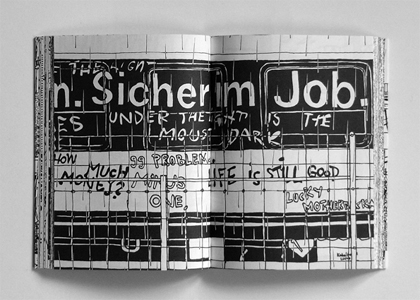 THE LIGHT
n. Sicher im Job.
ES UNDER THE LIGHT IS THE
MOUST DARK
HOW MUCH MONEY??
99 PROBLEMS
MINUS
ONE,
LIFE IS STILL GOOD
LUCKY